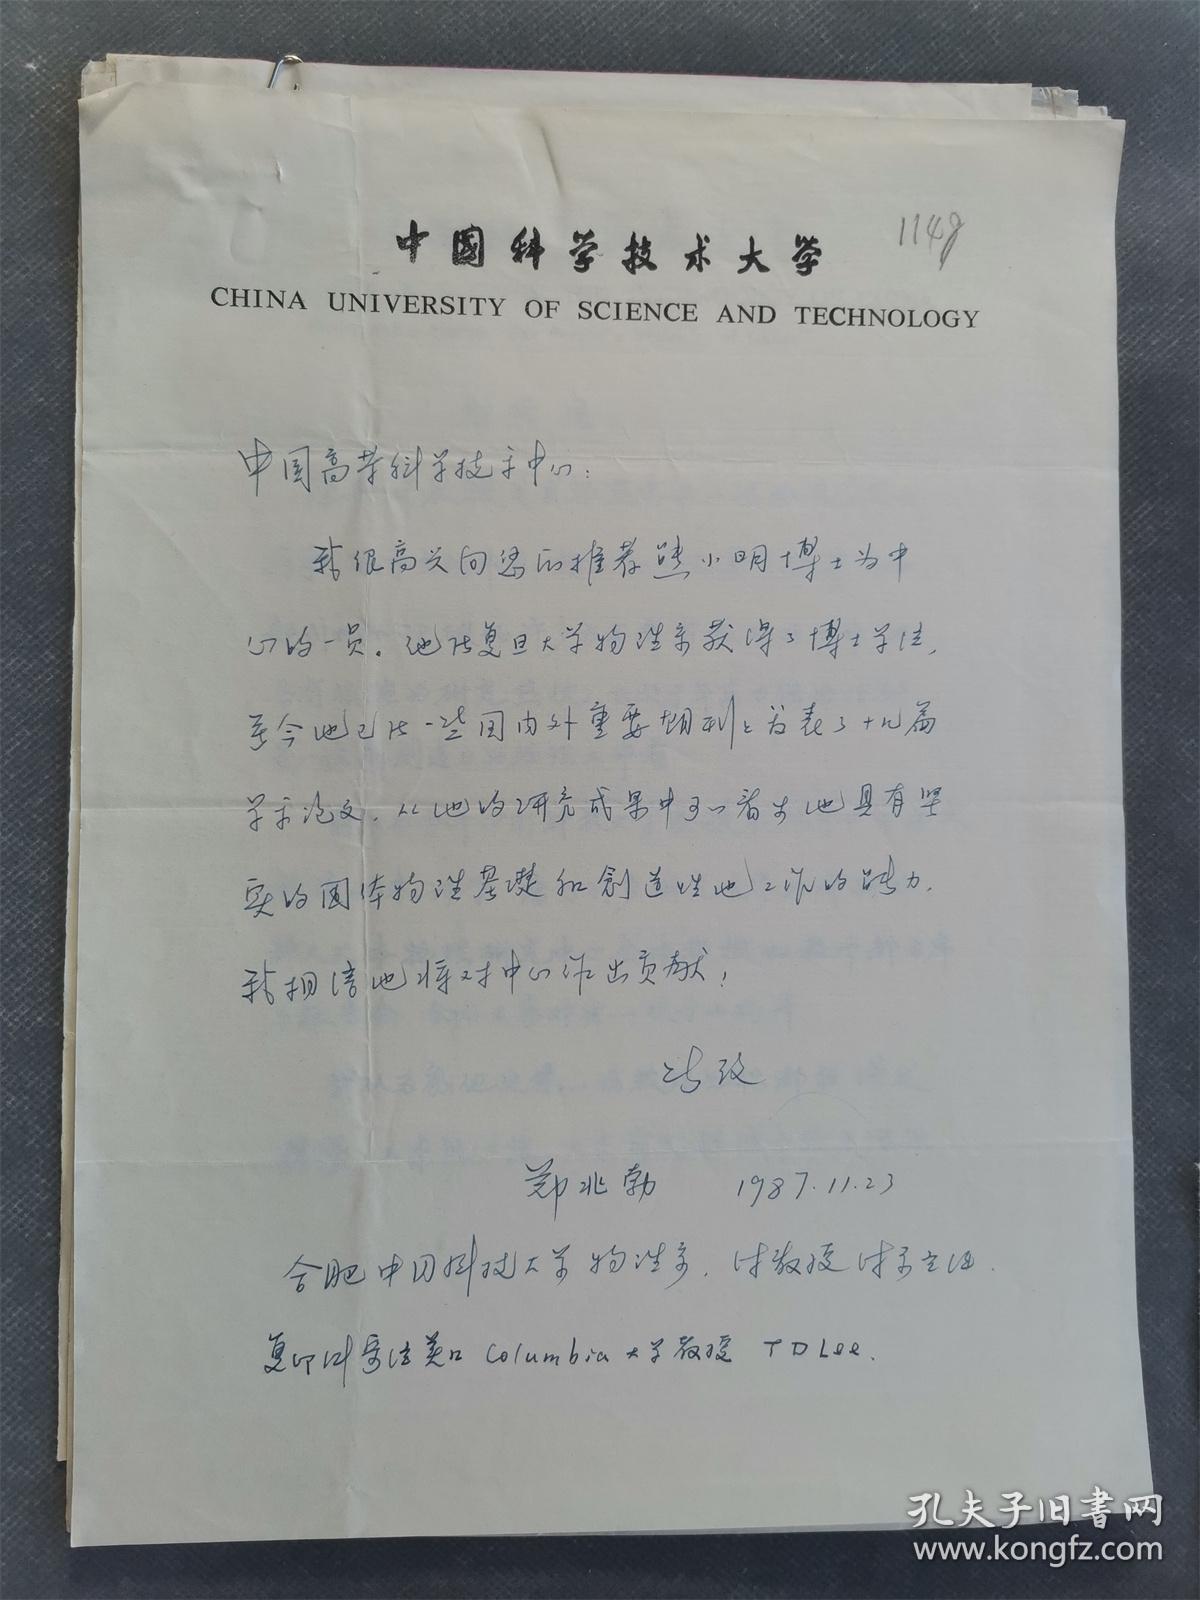 中国科学技术大学
1148
CHINA UNIVERSITY OF SCIENCE AND TECHNOLOGY
中国高等科学技术中心：
我很高兴向您们推荐熊小明博士为中
心的一员。他在复旦大学物理系获得了博士学位，
至今他已在一些国内外重要期刊上发表了十几篇
学术论文，从他的研究成果中可以看出他具有坚
实的固体物理基礎和創造性地工作的能力，
我相信他将对中心作出贡献！
此致
郑兆勃 1987.11.23
合肥中国科技大学物理系，付教授付系主任.
复印件寄给美国Columbia大学教授 T D Lee.
孔夫子旧書网
www.kongfz.com